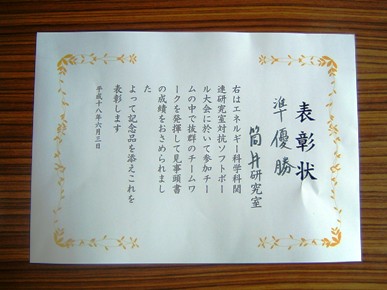 表彰状
準優勝
筒井研究室
右はエネルギー科学科関
連研究室対抗ソフトボー
ル大会に於いて参加チー
ムの中で抜群のチームワ
ークを発揮して見事頭書
の成績をおさめられまし
た
よって記念品を添えこれを
表彰します
平成十八年六月三日